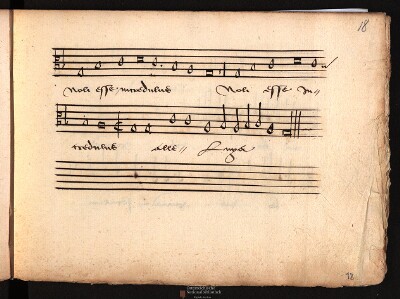 18
Noli esse incredulus Noli esse in-
credulus alle-
12
Österreichische
Nationalbibliothek